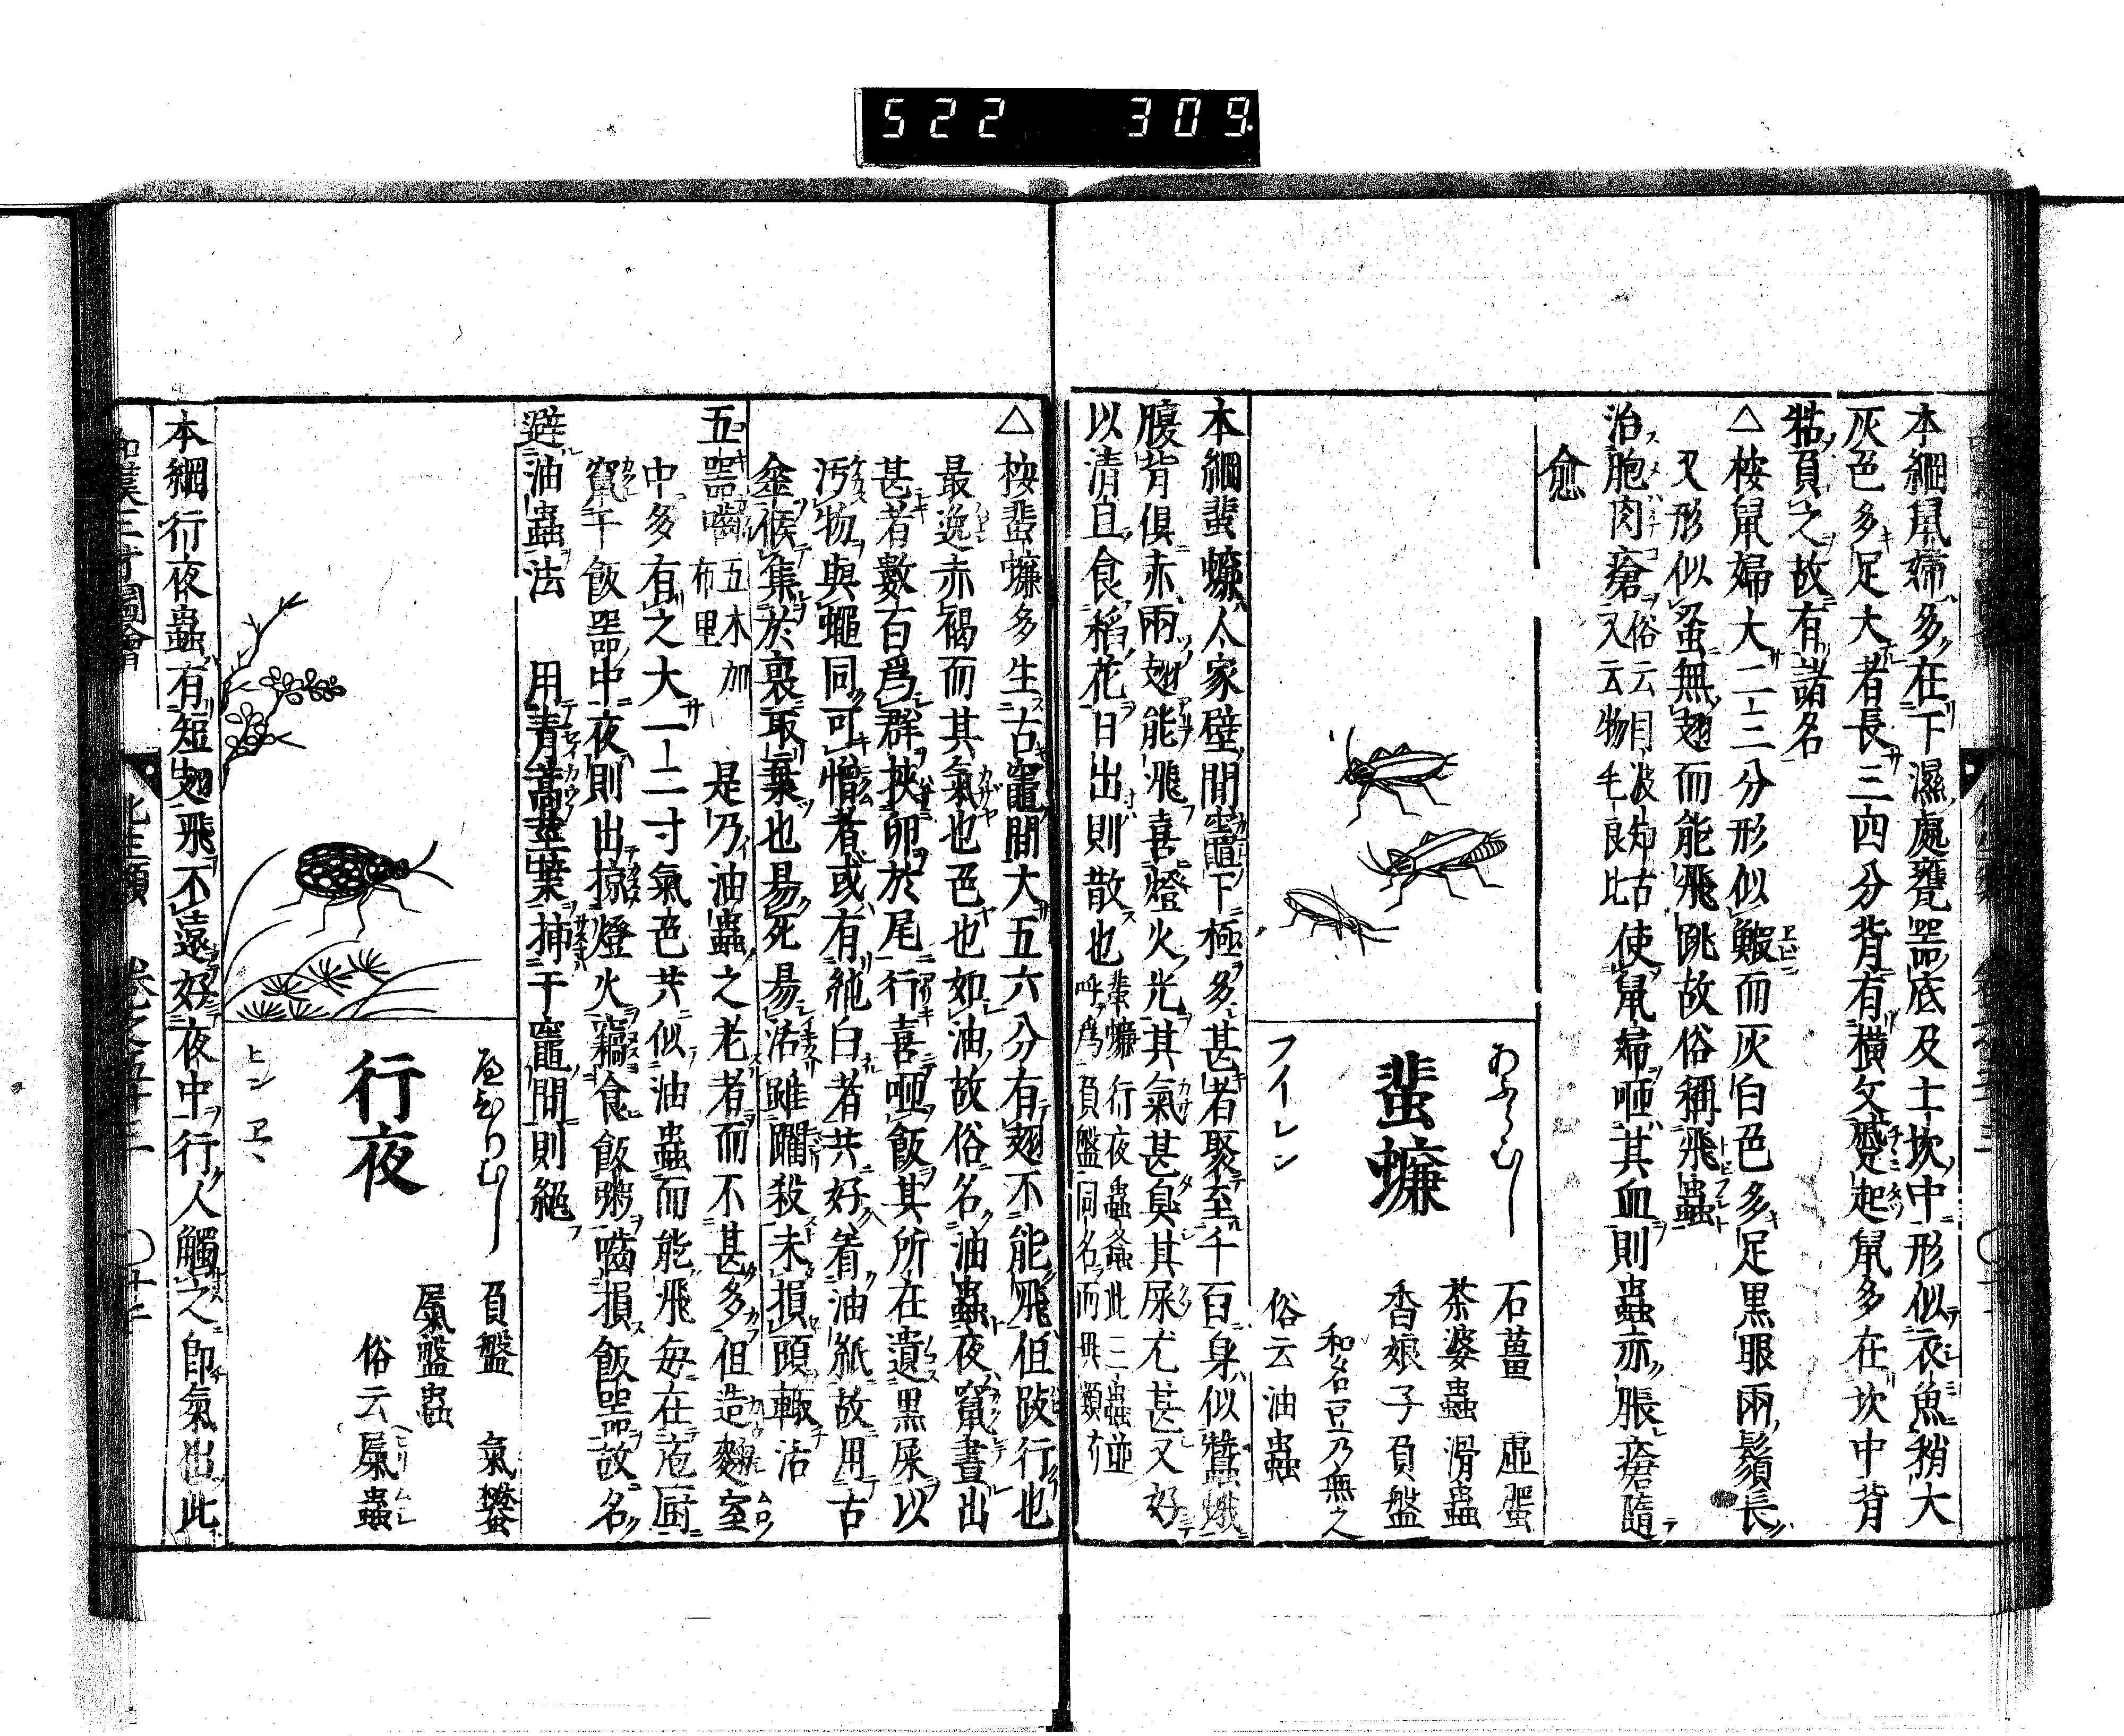 522 309
本綱鼠婦多在下濕處甕器底及土坎中形似衣魚稍大
灰色多足大者長三四分背有橫文蹙起鼠多在坎中背
粘負之故有諸名
△桉鼠婦大二三分形似鰕而灰白色多足黒眼兩鬚長
又形似蚤無翅而能飛跳故俗稱飛蟲
治胞肉瘡 俗云目波知古
又云物毛良比 使鼠婦咂其血則蟲亦脹瘡隨
愈
あふらむし
蜚蠊
フイレン
石薑 盧蜰
茶婆蟲 滑蟲
香娘子 負盤
和名豆乃無之
俗云油蟲
本綱蜚蠊人家壁間竈下極多甚者聚至千百身似蠶蛾
腹背俱赤兩翅能飛喜燈火光其氣甚臭其屎尤甚又好
以清旦食稻花日出則散也 蜚蠊 行夜 蟲螽 此三蟲並
呼爲 負盤 同名而異類
△桉蜚蠊多生古竈間大五六分有翅不能飛但跂行也
最逸赤褐而其氣也色也如油故俗名油蟲夜竄晝出
甚者數百爲群挾卵於尾行喜咂飯其所在遺黒屎以
汚物與蠅同可憎者或有純白者共好着油紙故用古
傘候集於裏取棄也易死易活雖躙殺未損頭輙活
五器嚙 五木加
布里 是乃油蟲之老者而不甚多但造麹室
中多有之大一二寸氣色共似油蟲而能飛毎在庖厨
竄于飯器中夜則出掠燈火竊食飯粥嚙損飯器故名
避油蟲法 用青蒿莖葉挿于竈間則絕
へひりむし
行夜
ヒン ヱ、
負盤 氣蠜
屁盤蟲
俗云屁蟲
本綱行夜蟲有短翅飛不遠好夜中行人觸之卽氣出此
和漢三才圖會 化生類 卷之五十三